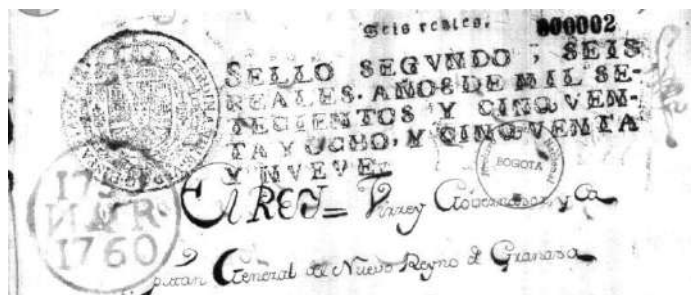 Seis reales. 000002
SELLO SEGVNDO, SEIS
REALES. AÑOS DE MIL SE-
TECIENTOS Y CINQVEN-
TA Y OCHO, Y CINQVENTA
Y NVEVE.
BOGOTA
1760
El REY = Virrey Governador, y Ca
pitan General de Nuevo Reyno de Granada